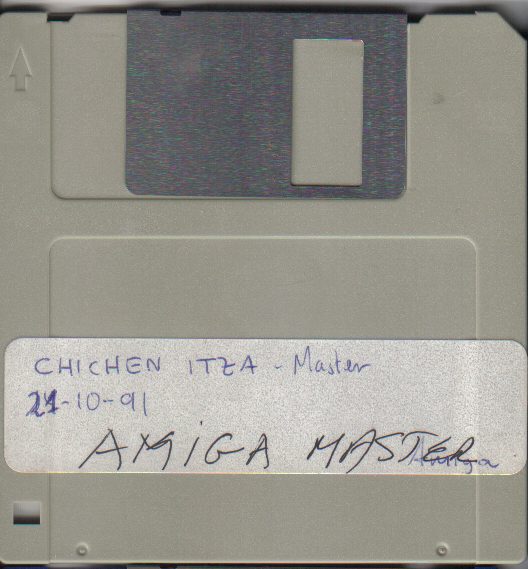 CHICHEN ITZA - Master
21-10-91
AMIGA MASTER
Amiga